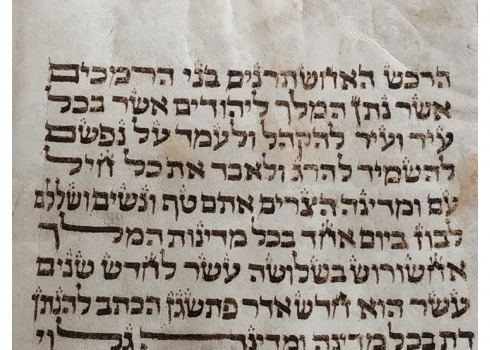 הרכש האחשתרנים בני הרמכים
אשר נתן המלך ליהודים אשר בכל
עיר ועיר להקהל ולעמד על נפשם
להשמיד להרג ולאבד את כל חיל
עם ומדינה הצרים אתם טף ונשים ושללם
לבוז ביום אחד בכל מדינות המלך
אחשורוש בשלושה עשר לחדש שנים
עשר הוא חדש אדר פתשגן הכתב להנתן
דת בכל מדינה ומדינה גלוי